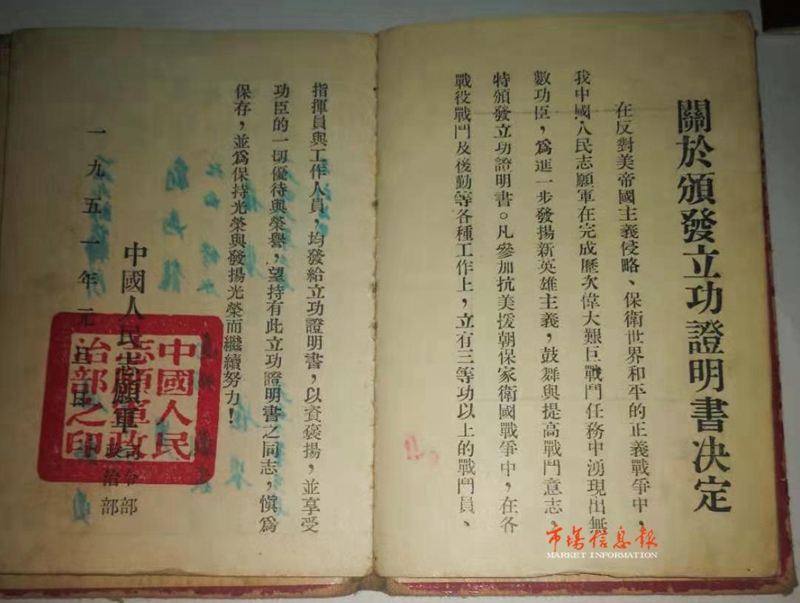 關於頒發立功證明書决定
在反對美帝國主義侵略、保衛世界和平的正義戰爭中，
我中國人民志願軍在完成歷次偉大艱巨戰鬥任務中湧現出無
數功臣，爲進一步發揚新英雄主義，鼓舞與提高戰鬥意志，
特頒發立功證明書。凡參加抗美援朝保家衛國戰爭中，在各
戰役戰鬥及後勤等各種工作上，立有三等功以上的戰鬥員、
指揮員與工作人員，均發給立功證明書，以資褒揚，並享受
功臣的一切優待與榮譽，望持有此立功證明書之同志，愼爲
保存，並爲保持光榮與發揚光榮而繼續努力！
中國人民志願軍
司令部
政治部
一九五一年元月
中國人民
志願軍政
治部之印
市場信息報
MARKET INFORMATION